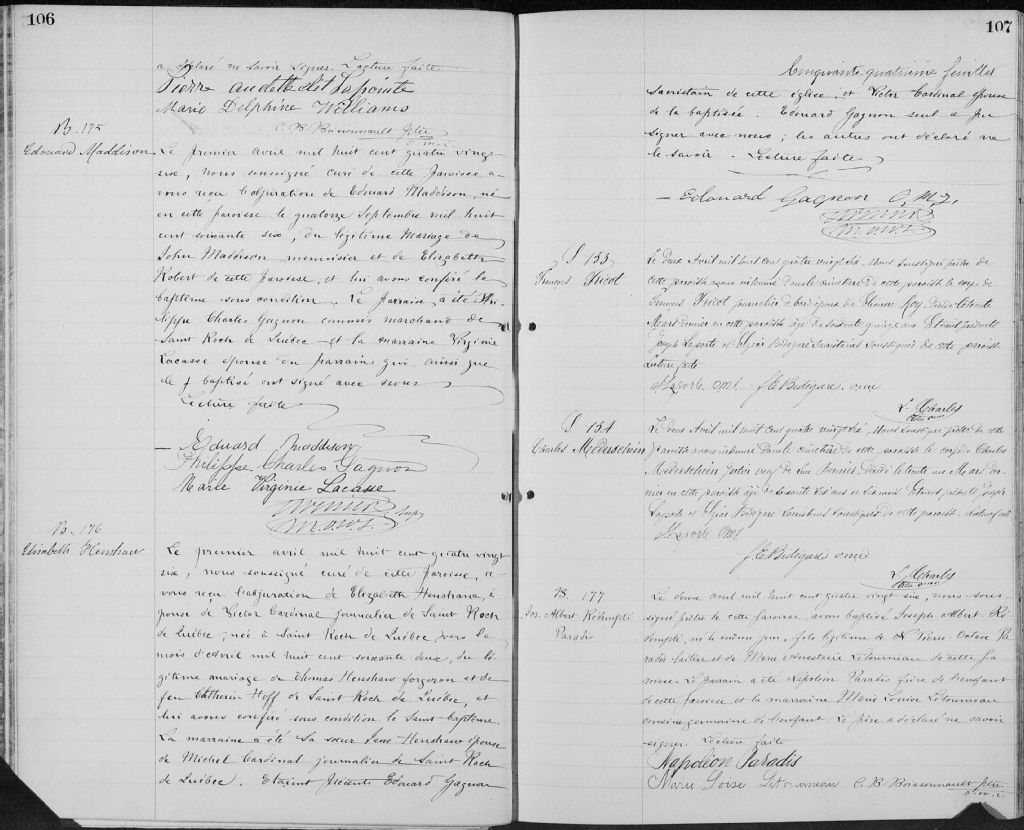 106
a déclaré ne savoir signer. Lecture faite
Pierre audette dit Lapointe
Marie Delphine Williams
C. B. Boissonnault Ptre
o.m.i.
B. 175
Edouard Maddison
Le premier avril mil huit cent quatre vingt
six, nous soussigné curé de cette paroisse a-
vons reçu l'abjuration de Edouard Maddison, né
en cette paroisse le quatorze Septembre mil huit
cent soixante six, du légitime Mariage de
John Maddison menuisier et de Elizabeth
Robert de cette paroisse, et lui avons conféré le
baptême sous condition. Le parrain a été Phi-
lippe Charles Gagnon commis marchand de
Saint Roch de Québec et la marraine Virginie
Lacasse épouse du parrain qui ainsi que
le baptisé ont signé avec nous
Lecture faite
Eduard Maddison
Philippe Charles Gagnon
Marie Virginie Lacasse
B. 176
Elisabeth Henshaw
Le premier avril mil huit cent quatre vingt
six, nous soussigné curé de cette paroisse, a-
vons reçu l'abjuration de Elizabeth Henshaw, é-
pouse de Victor Cardinal journalier de Saint Roch
de Québec, née à Saint Roch de Québec vers le
mois d'Avril mil huit cent soixante deux, du lé-
gitime mariage de Thomas Henshaw forgeron et de
feu Catherin Hoff de Saint Roch de Québec, et
lui avons conféré sous condition le Saint Baptême
La marraine a été Sa sœur Jane Henshaw épouse
de Michel Cardinal journalier de Saint Roch
de Québec. Etaient présents Edouard Gagnon
107
Cinquante quatrième feuillet
Sacristain de cette église, et Victor Cardinal épouse
de la baptisée. Edouard Gagnon seul a pu
signer avec nous; les autres ont déclaré ne
le savoir. Lecture faite
Edouard Gagnon
S 153
François Pricot
Le deux Avril mil huit cent quatre vingt six, Nous soussigné prêtre de
cette paroisse avons inhumé dans le cimetière de cette paroisse le corps de
François Pricot journalier de bord époux de Roy, décédé le trente
Mars dernier en cette paroisse âgé de soixante quinze ans. Etaient présents
Joseph Laporte et Elzéar Bédégaré Sacristains Soussignés de cette paroisse
Lecture faite
J Laporte omi. J. E. Bedegare omi
L. Charles
Ptre omi
S 154
Charles Mederschein
Le deux Avril mil huit cent quatre vingt six, Nous soussigné prêtre de cette
paroisse avons inhumé dans le cimetière de cette paroisse le corps de Charles
Mederschein veuf de décédé le trente un Mars der-
nier en cette paroisse âgé de soixante six ans et six mois. Etaient présents Joseph
Laporte et Elzéar Bedegare Sacristains Soussignés de cette paroisse. Lecture faite
J Laporte Omi
J. E. Bedegare omi
L. Charles
Ptre omi
B. 177
Jos. Albert Rédempté
Paradis
Le deux avril mil huit cent quatre vingt six, nous sous-
signé prêtre de cette paroisse avons baptisé Joseph Albert Ré-
dempté, né le même jour, fils légitime de N. Pierre Octave Pa-
radis laitier et de Marie Anastasie Letourneau de cette pa-
roisse. Le parrain a été Napoléon Paradis frère de l'enfant
de cette paroisse et la marraine Marie Louise Letourneau
cousine germaine de l'enfant. Le père a déclaré ne savoir
signer. Lecture faite
Napoléon Paradis
Marie Loise Letourneau C. B. Boissonnault Ptre
o.m.i.